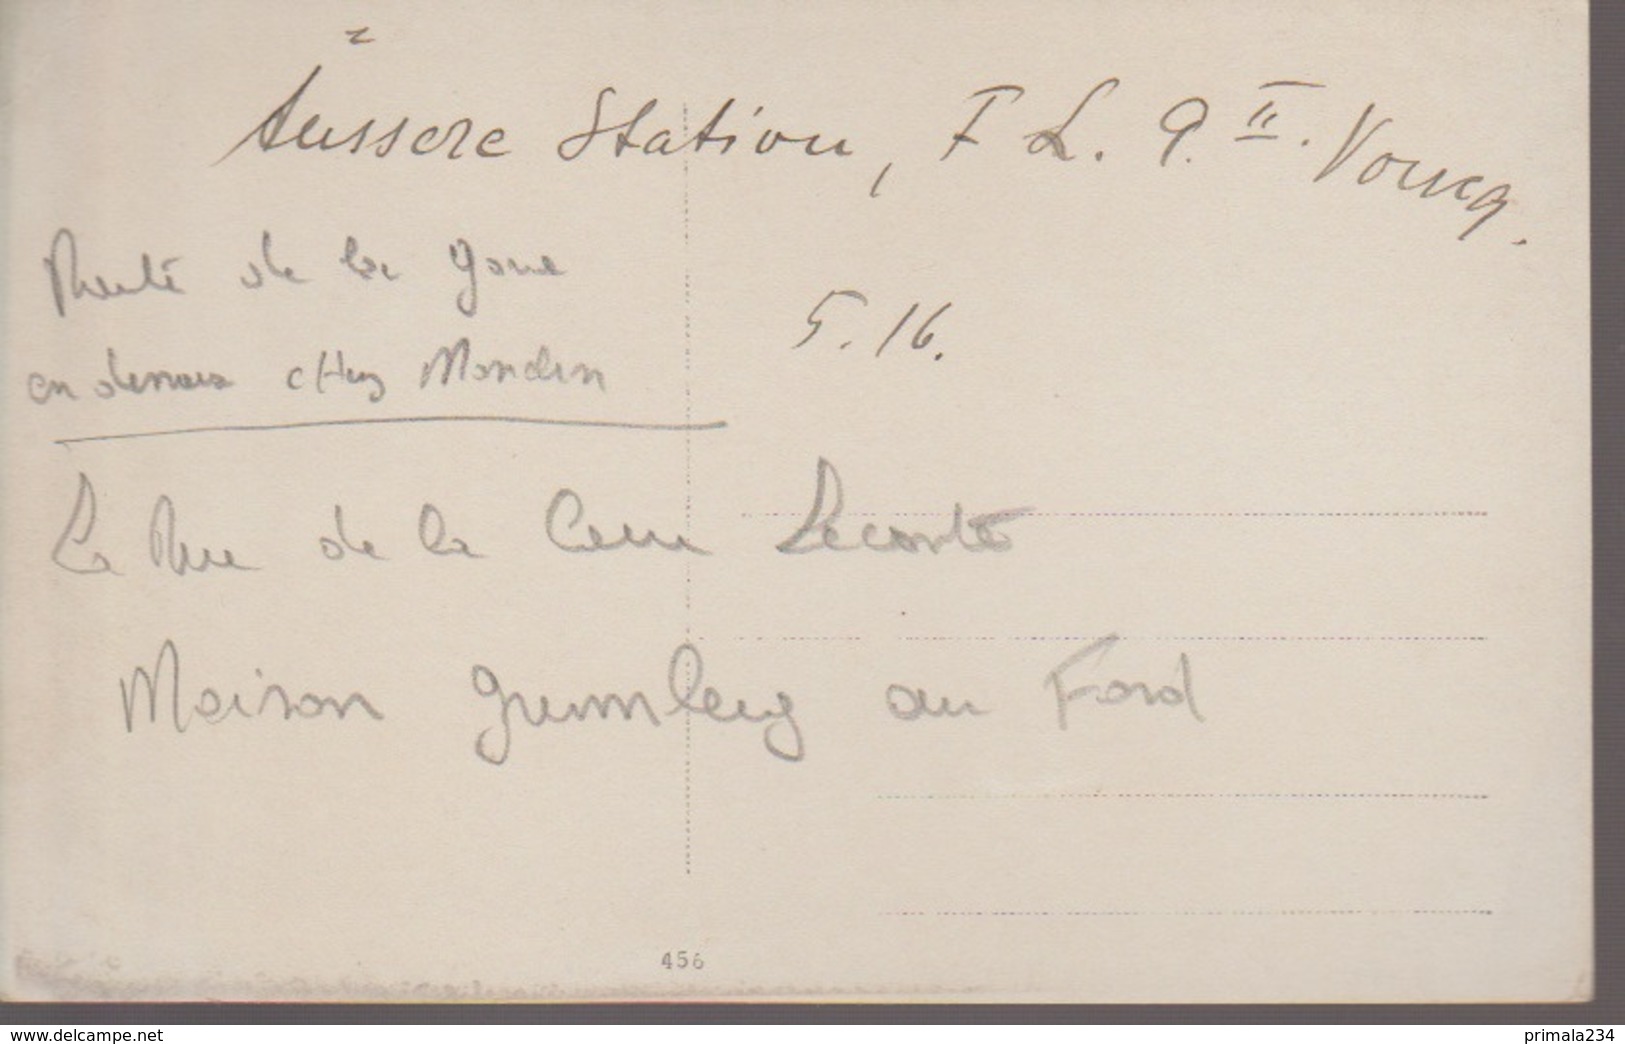 Äussere Station, F L. 9. II. Voucq.
5. 16.
de la gare
en dessous chez Mondin
La Rue de la Leconte
Maison au Fond
456
delcampe.net
primala234